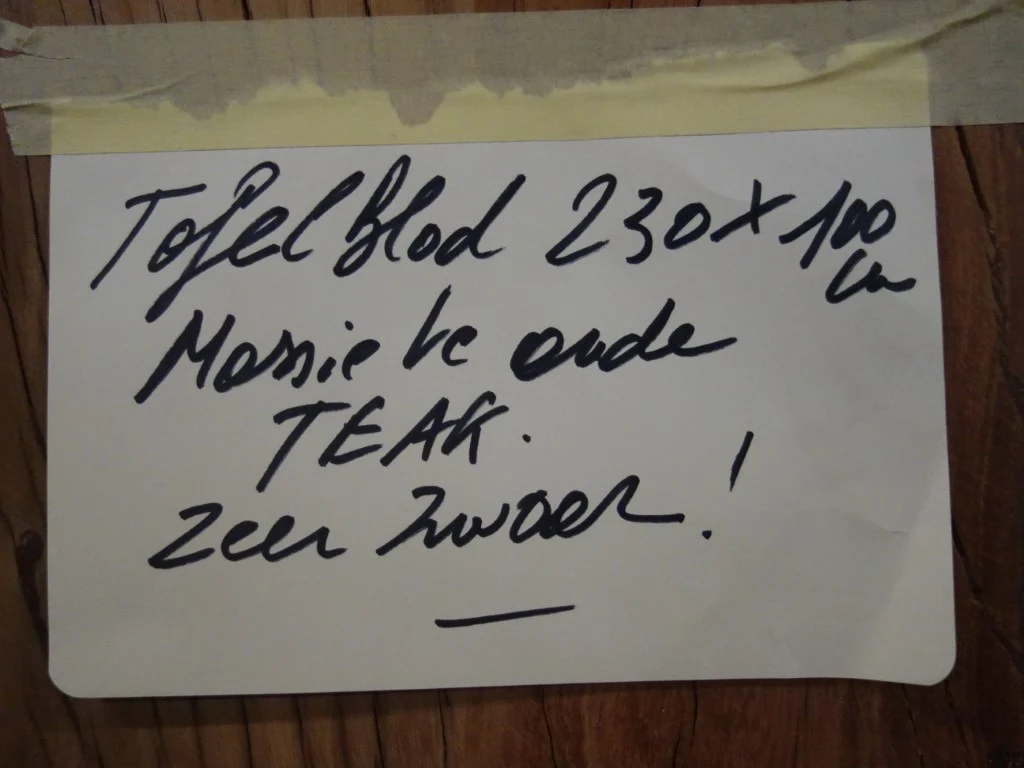 Tafelblad 230 x 100 cm
Massieve oude
TEAK.
Zeer zwaar!